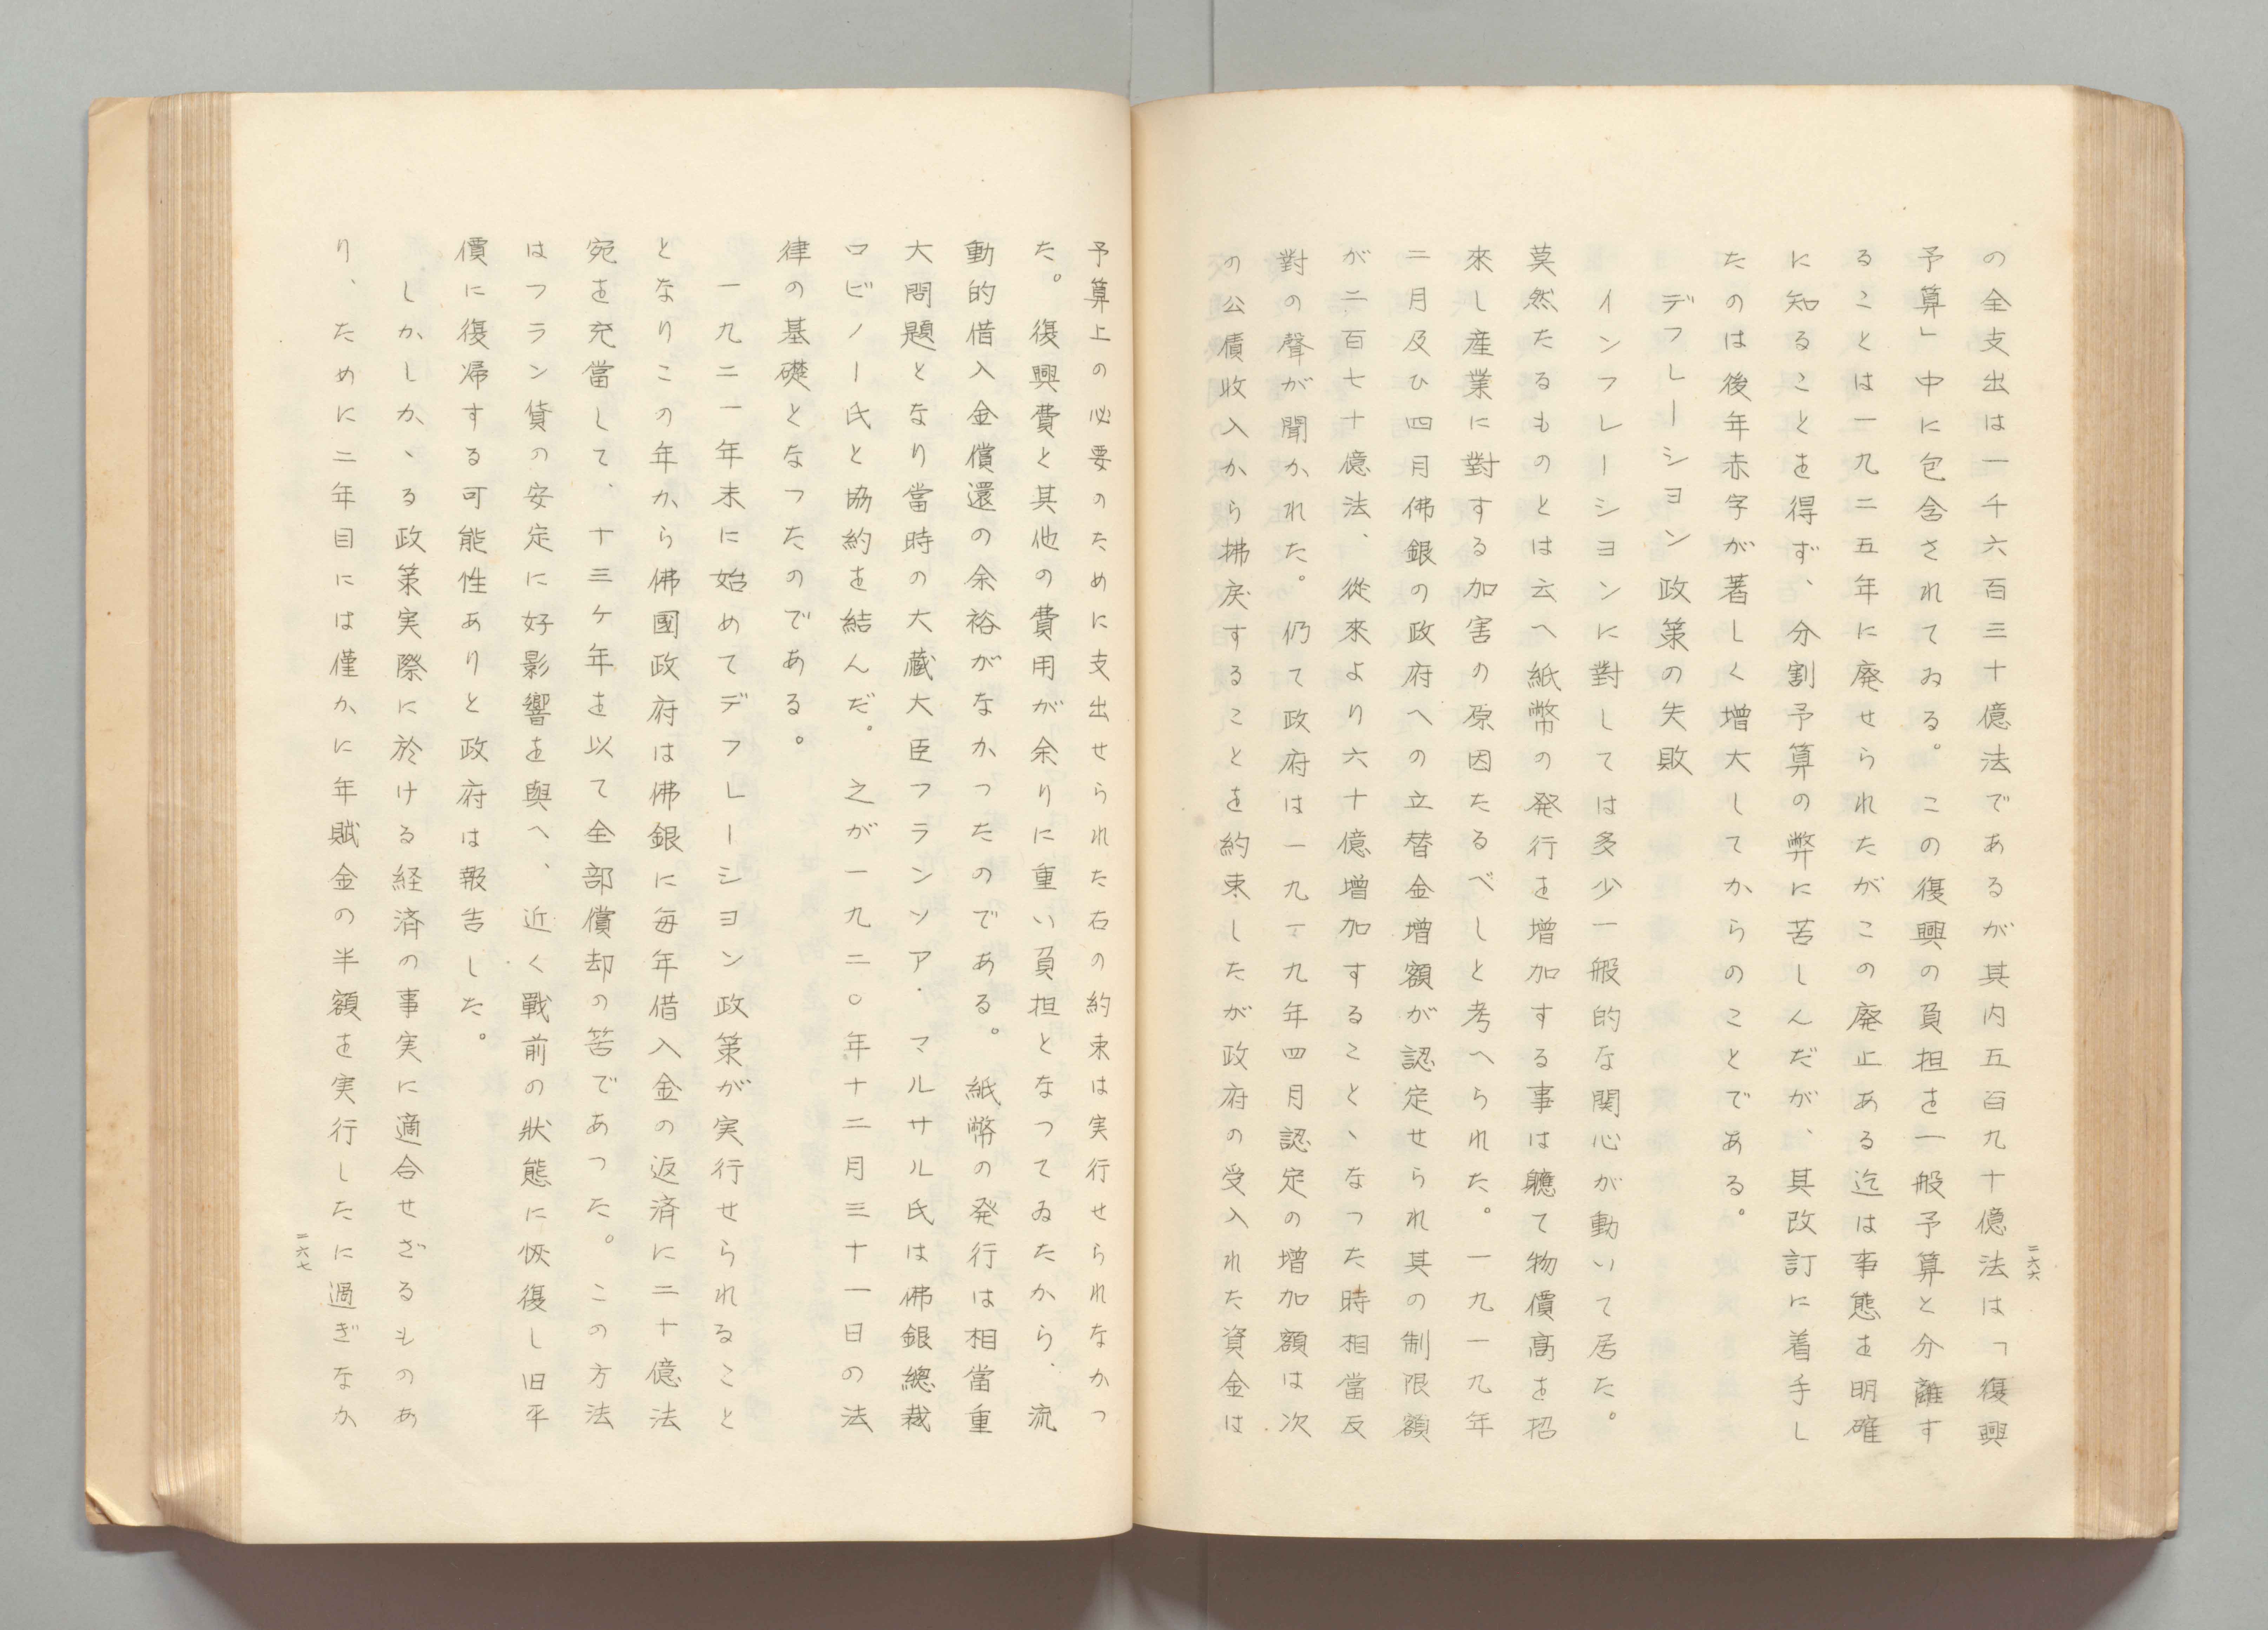 の全支出は一千六百三十億法であるが其内五百九十億法は「復興
予算」中に包含されてゐる。この復興の負担を一般予算と分離す
ることは一九二五年に廃せられたがこの廃止ある迄は事態を明確
に知ることを得ず、分割予算の弊に苦しんだが、其改訂に着手し
たのは後年赤字が著しく増大してからのことである。
デフレーシヨン政策の失敗
インフレーシヨンに對しては多少一般的な関心が動いて居た。
莫然たるものとは云へ紙幣の発行を増加する事は軈て物價高を招
來し産業に對する加害の原因たるべしと考へられた。一九一九年
二月及ひ四月佛銀の政府への立替金増額が認定せられ其の制限額
が二百七十億法、從來より六十億増加することヽなつた時相當反
對の聲が聞かれた。仍て政府は一九一九年四月認定の増加額は次
の公債收入から拂戻することを約束したが政府の受入れた資金は
二六六
予算上の必要のために支出せられた右の約束は実行せられなかつ
た。復興費と其他の費用が余りに重い負担となつてゐたから、流
動的借入金償還の余裕がなかつたのである。紙幣の発行は相當重
大問題となり當時の大蔵大臣フランソア・マルサル氏は佛銀總裁
ロビノー氏と協約を結んだ。之が一九二〇年十二月三十一日の法
律の基礎となつたのである。
一九二一年末に始めてデフレーシヨン政策が実行せられること
となりこの年から佛國政府は佛銀に毎年借入金の返済に二十億法
宛を充當して、十三ケ年を以て全部償却の筈であつた。この方法
はフラン貨の安定に好影響を與へ、近く戰前の狀態に恢復し旧平
價に復帰する可能性ありと政府は報告した。
しかしかヽる政策実際に於ける経済の事実に適合せざるものあ
り、ために二年目には僅かに年賦金の半額を実行したに過ぎなか
二六七